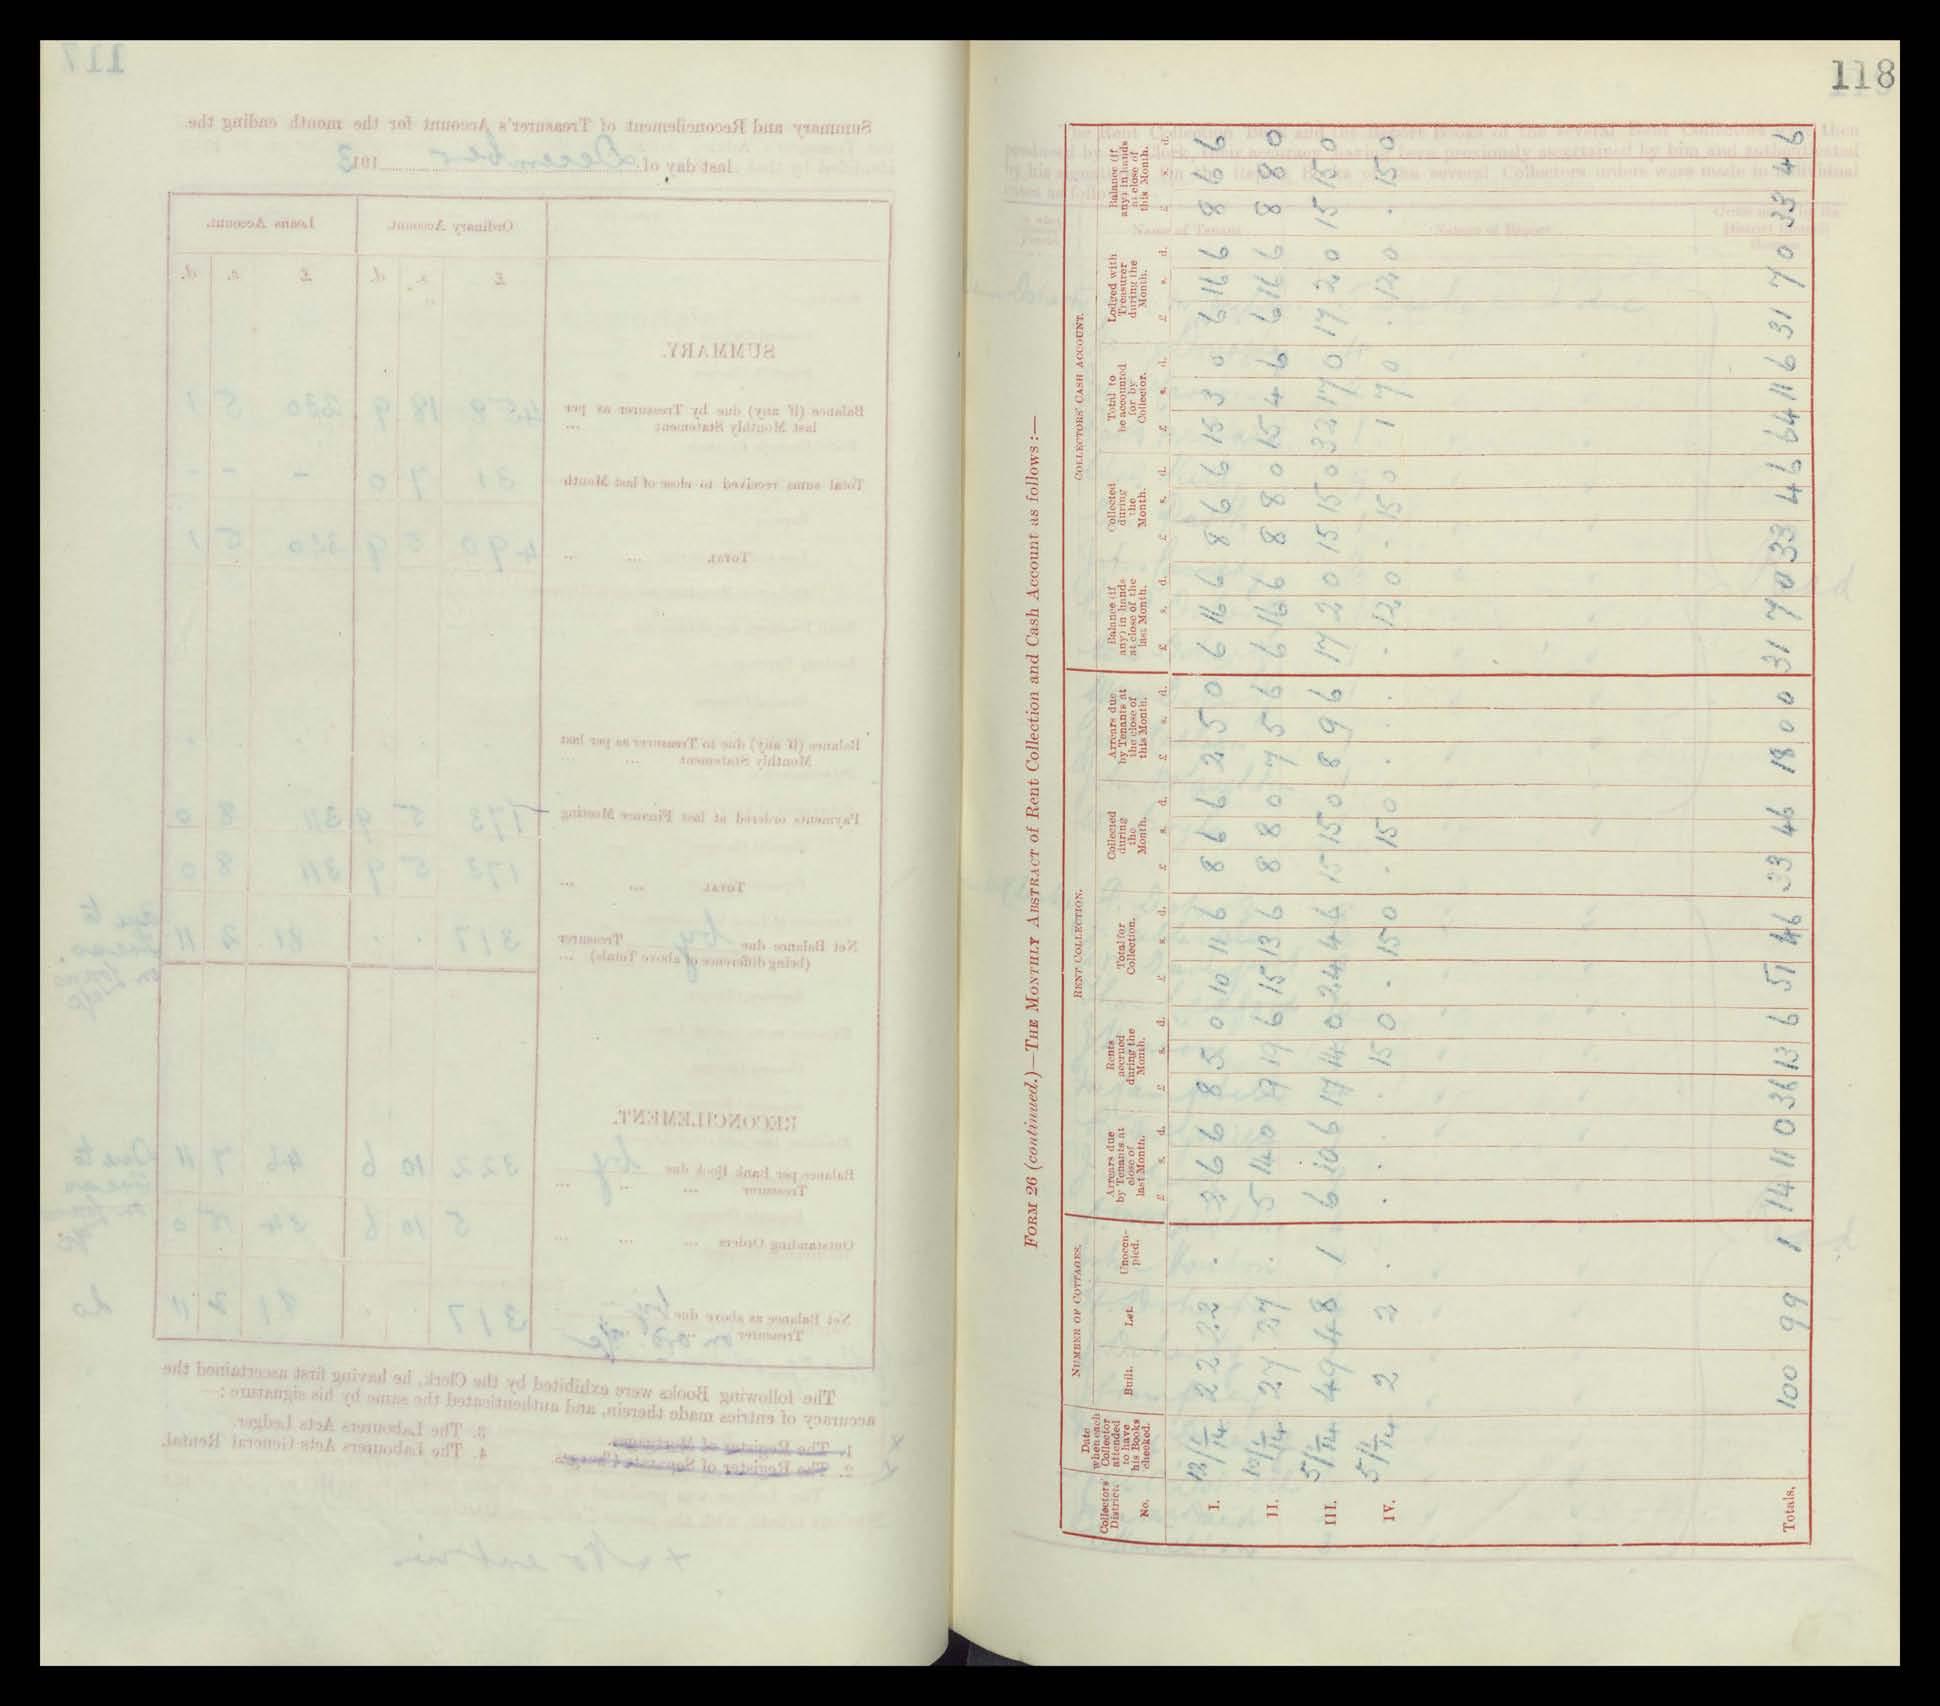 117
Summary and Reconcilement of Treasurer's Account for the month ending the
last day of December 1913
Ordinary Account. Loans Account.
£ s. d. £ s. d.
SUMMARY.
Balance (if any) due by Treasurer as per
last Monthly Statement ... 458 18 9 320 5 1
Total sums received to close of last Month 31 7 0 - - -
TOTAL ... ... 490 5 9 320 5 1
Balance (if any) due to Treasurer as per last
Monthly Statement ... ...
Payments ordered at last Finance Meeting 173 5 9 311 8 0
TOTAL ... ... 173 5 9 311 8 0
Net Balance due by Treasurer
(being difference of above Totals) ... 317 . . 81 2 11
RECONCILEMENT.
Balance per Bank Book due by
Treasurer ... ... ... 322 10 6 46 7 11
Outstanding Orders ... ... ... 5 10 6 34 15 0
Net Balance as above due by
Treasurer 317 . . 81 2 11 do
The following Books were exhibited by the Clerk, he having first ascertained the
accuracy of entries made therein, and authenticated the same by his signature :—
1. The Register of Mortgages. 3. The Labourers Acts Ledger.
2. The Register of Separate Charges. 4. The Labourers Acts General Rental.
+ No entries
118
FORM 26 (continued.)—THE MONTHLY ABSTRACT of Rent Collection and Cash Account as follows :—
NUMBER OF COTTAGES. RENT COLLECTION. COLLECTORS' CASH ACCOUNT.
Collectors' District. No. Date when each Collector attended to have his Books checked. Built. Let. Unoccupied. Arrears due by Tenants at close of last Month. Rents accrued during the Month. Total for Collection. Collected during the Month. Arrears due by Tenants at the close of this Month. Balance (if any) in hands at close of the last Month. Collected during the Month. Total to be accounted for by Collector. Lodged with Treasurer during the Month. Balance (if any) in hands at close of this Month.
£ s. d. £ s. d. £ s. d. £ s. d. £ s. d. £ s. d. £ s. d. £ s. d. £ s. d. £ s. d.
I. 13/1/14 22 22 . 2 6 6 8 5 0 10 11 6 8 6 6 2 5 0 6 16 6 8 6 6 15 3 0 6 16 6 8 6 6
II. 10/1/14 27 27 . 5 14 0 9 19 6 15 13 6 8 8 0 7 5 6 6 16 6 8 8 0 15 4 6 6 16 6 8 8 0
III. 5/1/14 49 48 1 6 10 6 17 14 0 24 4 6 15 15 0 8 9 6 17 2 0 15 15 0 32 17 0 17 2 0 15 15 0
IV. 5/1/14 2 2 . . . . . 15 0 . 15 0 . 15 0 . . . . 12 0 . 15 0 1 7 0 . 12 0 . 15 0
Totals, 100 99 1 14 11 0 36 13 6 51 4 6 33 4 6 18 0 0 31 7 0 33 4 6 64 11 6 31 7 0 33 4 6